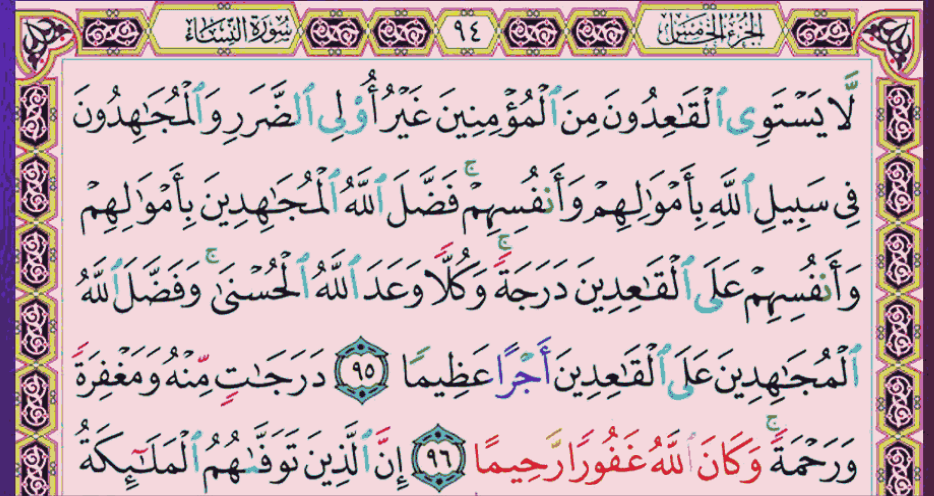 الجزء الخامس ٩٤ سورة النساء
لَّا يَسْتَوِى ٱلْقَٰعِدُونَ مِنَ ٱلْمُؤْمِنِينَ غَيْرُ أُو۟لِى ٱلضَّرَرِ وَٱلْمُجَٰهِدُونَ
فِى سَبِيلِ ٱللَّهِ بِأَمْوَٰلِهِمْ وَأَنفُسِهِمْ ۚ فَضَّلَ ٱللَّهُ ٱلْمُجَٰهِدِينَ بِأَمْوَٰلِهِمْ
وَأَنفُسِهِمْ عَلَى ٱلْقَٰعِدِينَ دَرَجَةً ۚ وَكُلًّا وَعَدَ ٱللَّهُ ٱلْحُسْنَىٰ ۚ وَفَضَّلَ ٱللَّهُ
ٱلْمُجَٰهِدِينَ عَلَى ٱلْقَٰعِدِينَ أَجْرًا عَظِيمًا ٩٥ دَرَجَٰتٍ مِّنْهُ وَمَغْفِرَةً
وَرَحْمَةً ۚ وَكَانَ ٱللَّهُ غَفُورًا رَّحِيمًا ٩٦ إِنَّ ٱلَّذِينَ تَوَفَّىٰهُمُ ٱلْمَلَٰٓئِكَةُ